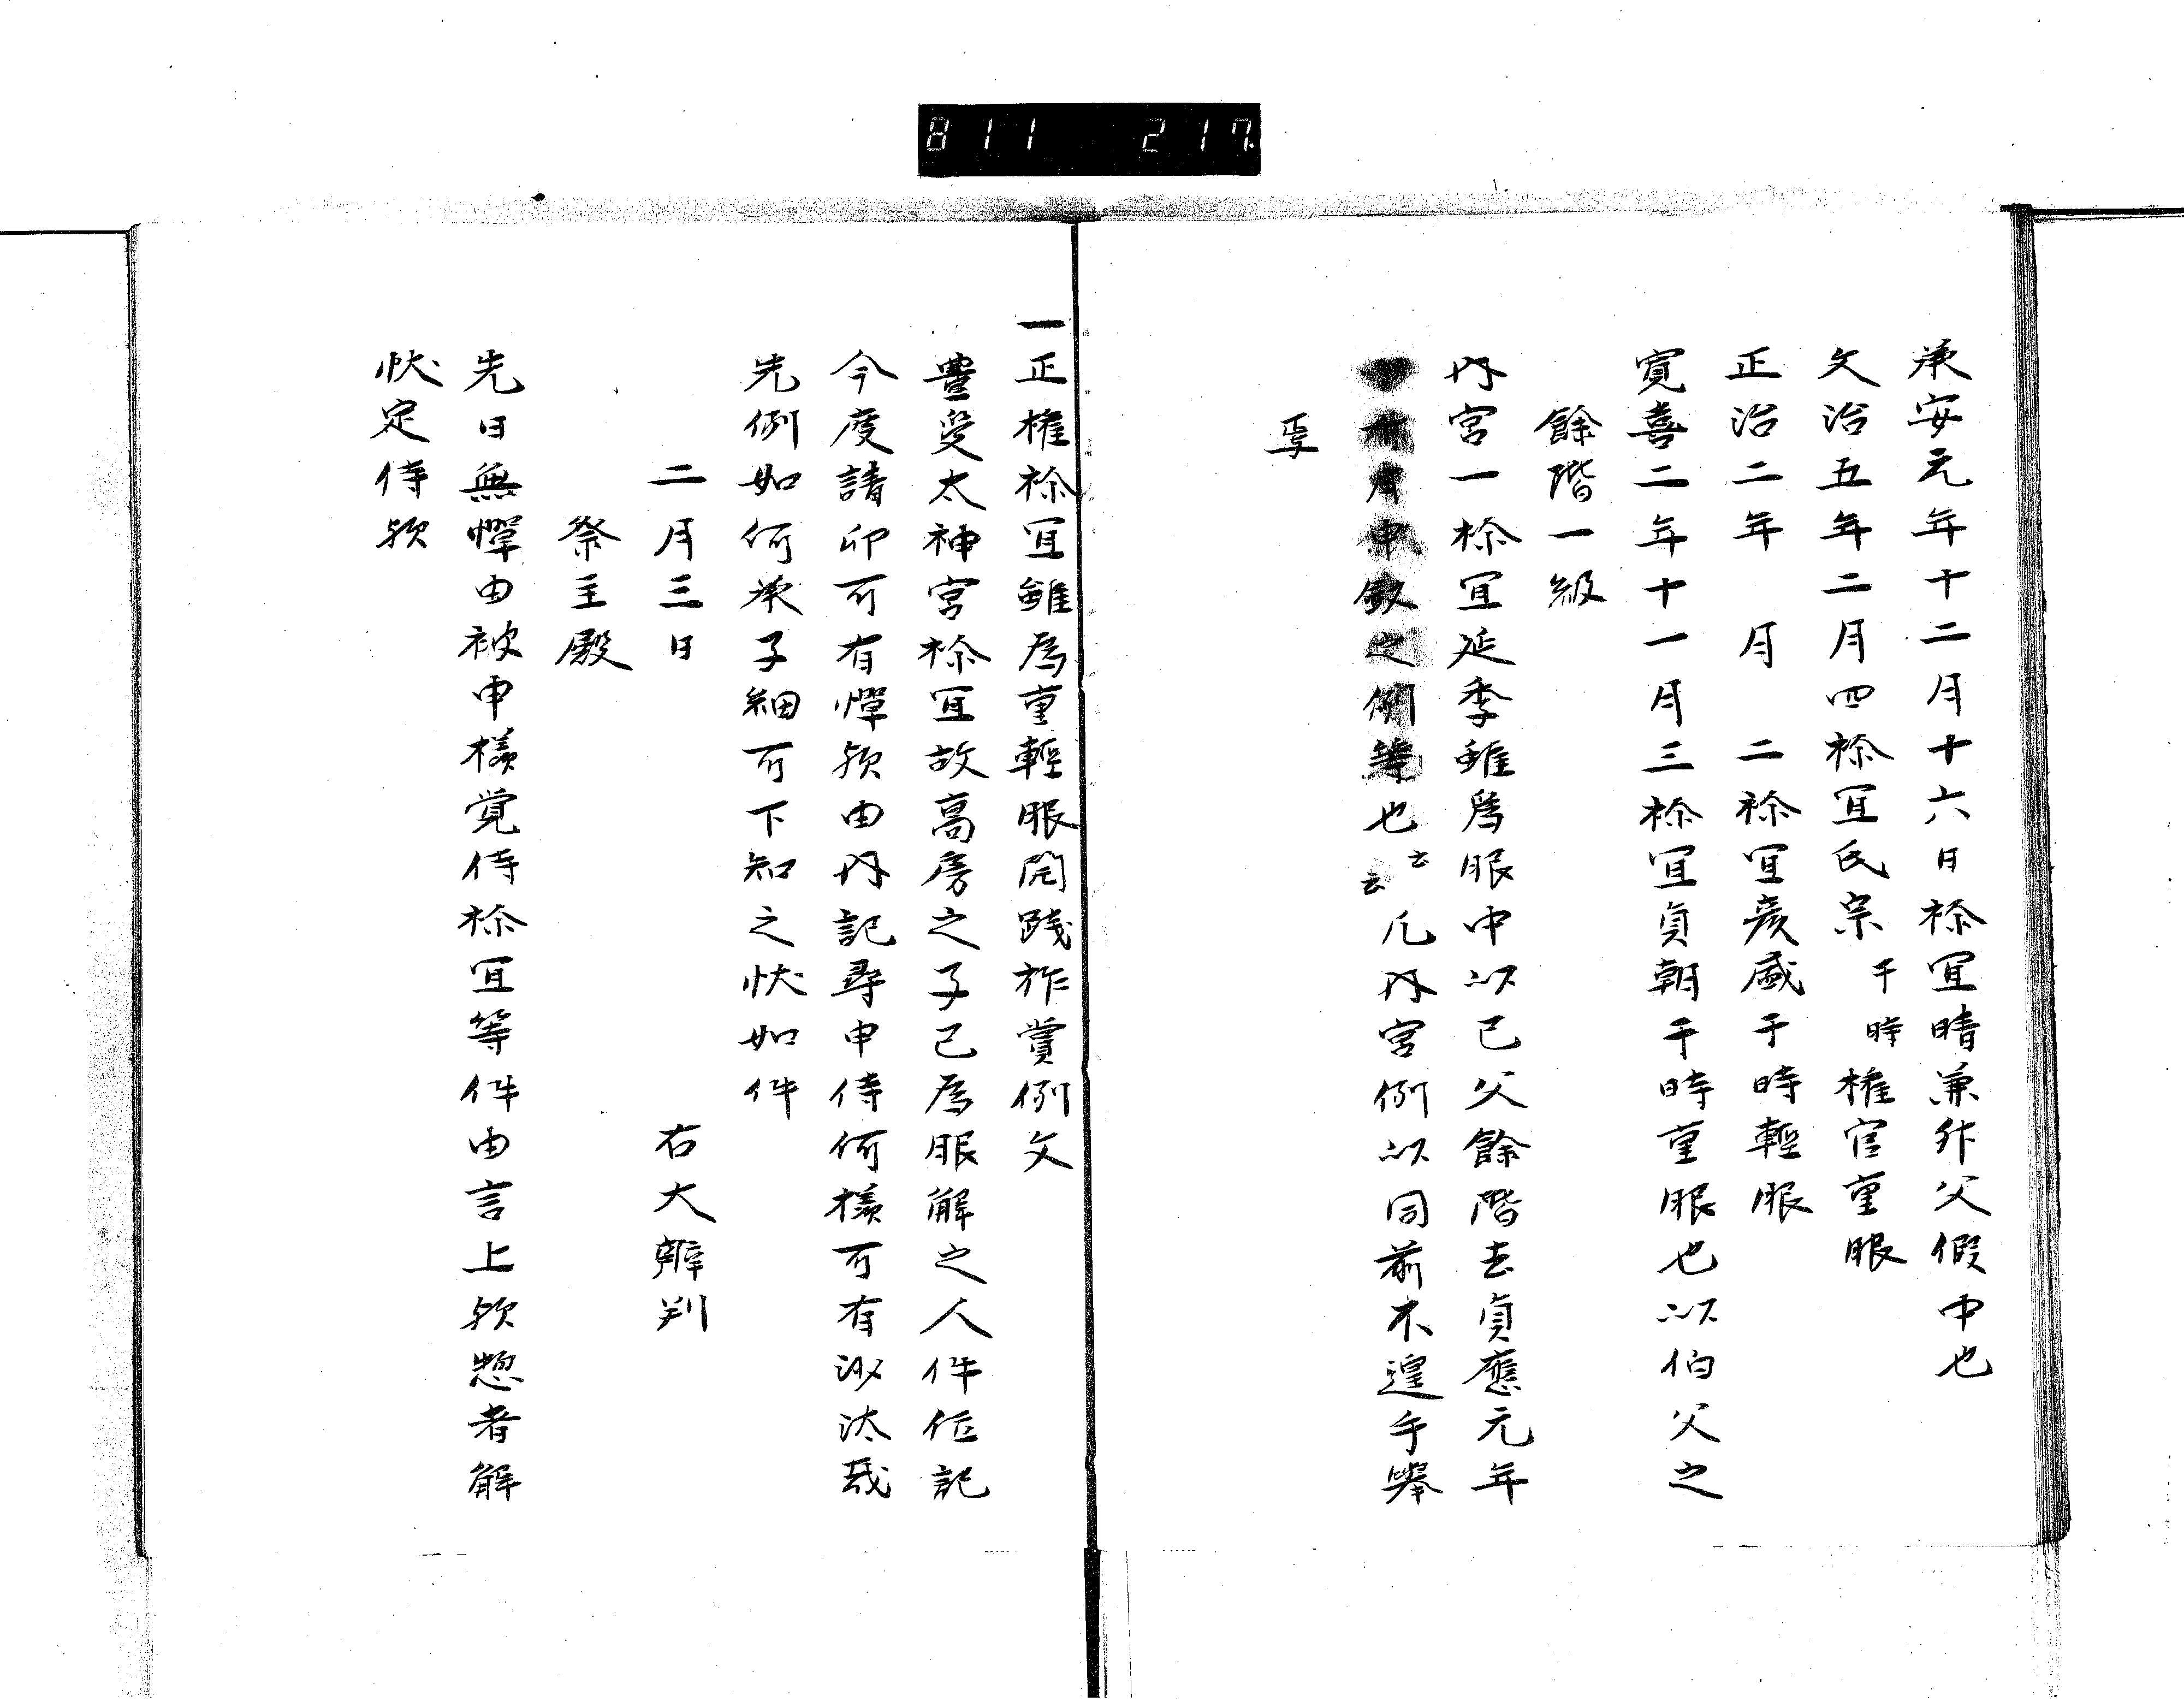 811 217
承安元年十二月十六日祢宜晴兼外父假中也
文治五年二月四祢宜氏宗于時権官重服
正治二年 月 二祢宜彦盛于時輕服
寛喜二年十一月三祢宜貞朝于時重服也以伯父之
餘階一級
内宮一祢宜延季雖爲服中以已父餘階去貞應元年
月申敘之例等也云云凡内宮例以同前不遑手舉
焉
一正権祢宜雖爲重輕服関踐祚賞例文
豊受太神宮祢宜故高房之子已爲服解之人件位記
今度請印可有憚歟由内記尋申侍何様可有沙汰哉
先例如何承子細可下知之状如件
二月三日 右大辨判
祭主殿
先日無憚由被申様覚侍祢宜等件由言上歟惣者解
状定侍歟